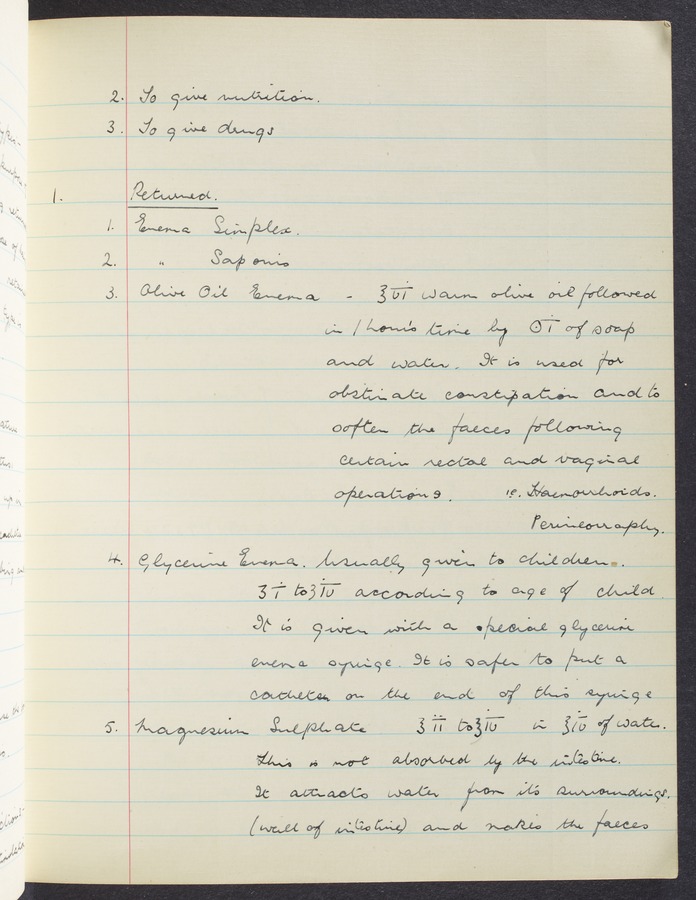 2. To give nutrition.
3. To give drugs
1. Returned.
1. Enema Simplex.
2. " Saponis
3. Olive Oil Enema - ℥vi warm olive oil followed
in 1 hour's time by Oi of soap
and water. It is used for
obstinate constipation and to
soften the faeces following
certain rectal and vaginal
operations. ie. Haemorrhoids.
Perineorraphy.
4. Glycerine Enema. Usually given to children.
ʒi to ʒiv according to age of child
It is given with a special glycerine
enema syringe. It is safer to put a
catheter on the end of this syringe
5. Magnesium Sulphate ℥ii to ℥iv in ℥iv of water.
This is not absorbed by the intestine.
It attracts water from its surroundings.
(wall of intestine) and makes the faeces